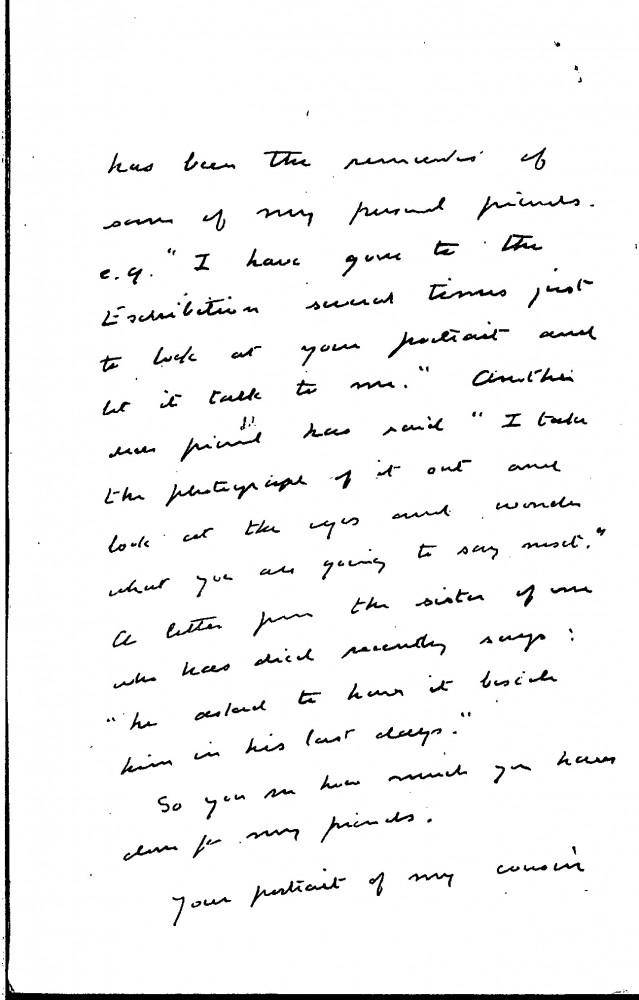 has been the remarks of
some of my personal friends.
e.g. "I have gone to the
Exhibition several times just
to look at your portrait and
let it talk to me." Another
dear friend has said "I take
the photograph of it out and
look at the eyes and wonder
what you are going to say next."
A letter from the sister of one
who has died recently says :
"he asked to have it beside
him in his last days."
So you see how much you have
done for my friends.
Your portrait of my cousin